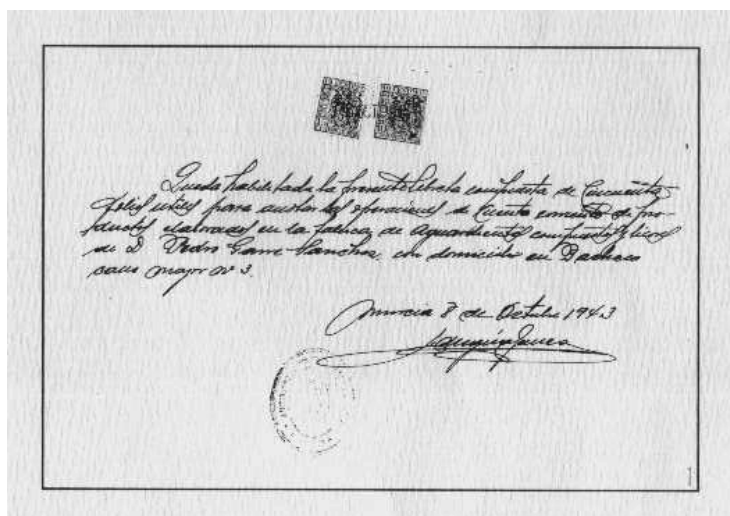 Queda habilitada la presente libreta compuesta de Cincuenta
folios utiles para anotar las operaciones de Cuenta corriente de pro-
ductos elaborados en la fabrica de Aguardientes compuestos y licores
de D. Pedro Garre Sanchez, con domicilio en Pacheco
calle mayor nº 3.
Murcia 8 de Octubre 1943
1